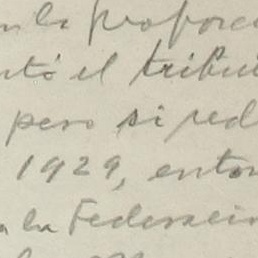 la propor
el tribu
pero si red
1929, enton
la Federació